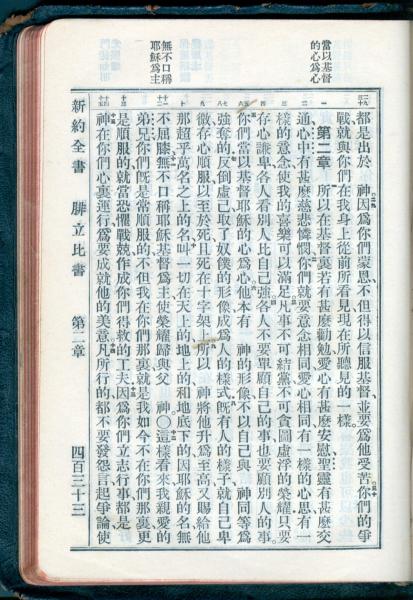 當以基督
的心爲心
無不口稱
耶穌爲主
都是出於　神因爲你們蒙恩不但得以信服基督並要爲他受苦你們的爭
戰就與你們在我身上從前所看見現在所聽見的一樣。
第二章　所以在基督裏若有甚麽勸勉愛心有甚麽安慰聖靈有甚麽交
通心中有甚麽慈悲憐憫你們就要意念相同愛心相同有一樣的心思有一
樣的意念使我的喜樂可以滿足凡事不可結黨不可貪圖虛浮的榮耀只要
存心謙卑各人看別人比自己強各人不要單顧自己的事也要顧別人的事。
你們當以基督耶穌的心爲心他本有　神的形像不以自己與　神同等爲
強奪的反倒虛己取了奴僕的形像成爲人的樣式既有人的樣子就自己卑
微存心順服以至於死且死在十字架上所以　神將他升爲至高又賜給他
那超乎萬名之上的名叫一切在天上的地上的和地底下的因耶穌的名無
不屈膝無不口稱耶穌基督爲主使榮耀歸與父　神〇這樣看來我親愛的
弟兄你們既是常順服的不但我在你們那裏就是我如今不在你們那裏更
是順服的就當恐懼戰兢作成你們得救的工夫因爲你們立志行事都是
神在你們心裏運行爲要成就他的美意凡所行的都不要發怨言起爭論使
新約全書　腓立比書　第二章　四百三十三